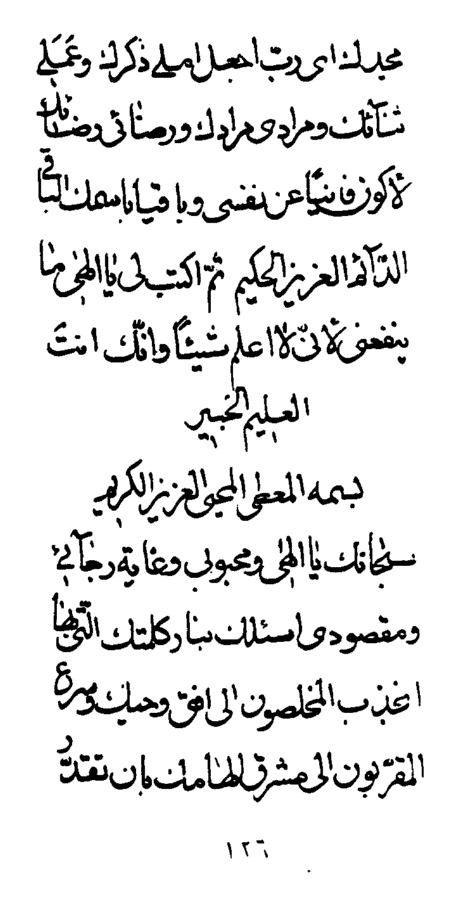 مجدك اى ربّ اجعل املى ذكرك وعَمَلى
ثنآئك ومرادى مرادك ورضائى رضائك
لاكون فانيًا عن نفسى وباقيا باسمك الباقى
الدّآئم العزيز الحكيم ثمّ اكتب لى يا الهى ما
ينفعنى لانّى لا اعلم شيئاً وانّك انتَ
العليم الخبير
بسمه المعطى المحيى العزيز الكريم
سبحانك يا الهى ومحبوبى وغاية رجآئى
ومقصودى اسئلك بنار كلمتك الّتى بها
انجذب المخلصون الى افق وحيك وسرع
المقرّبون الى مشرق الهامك بان تقدّر
١٢٦